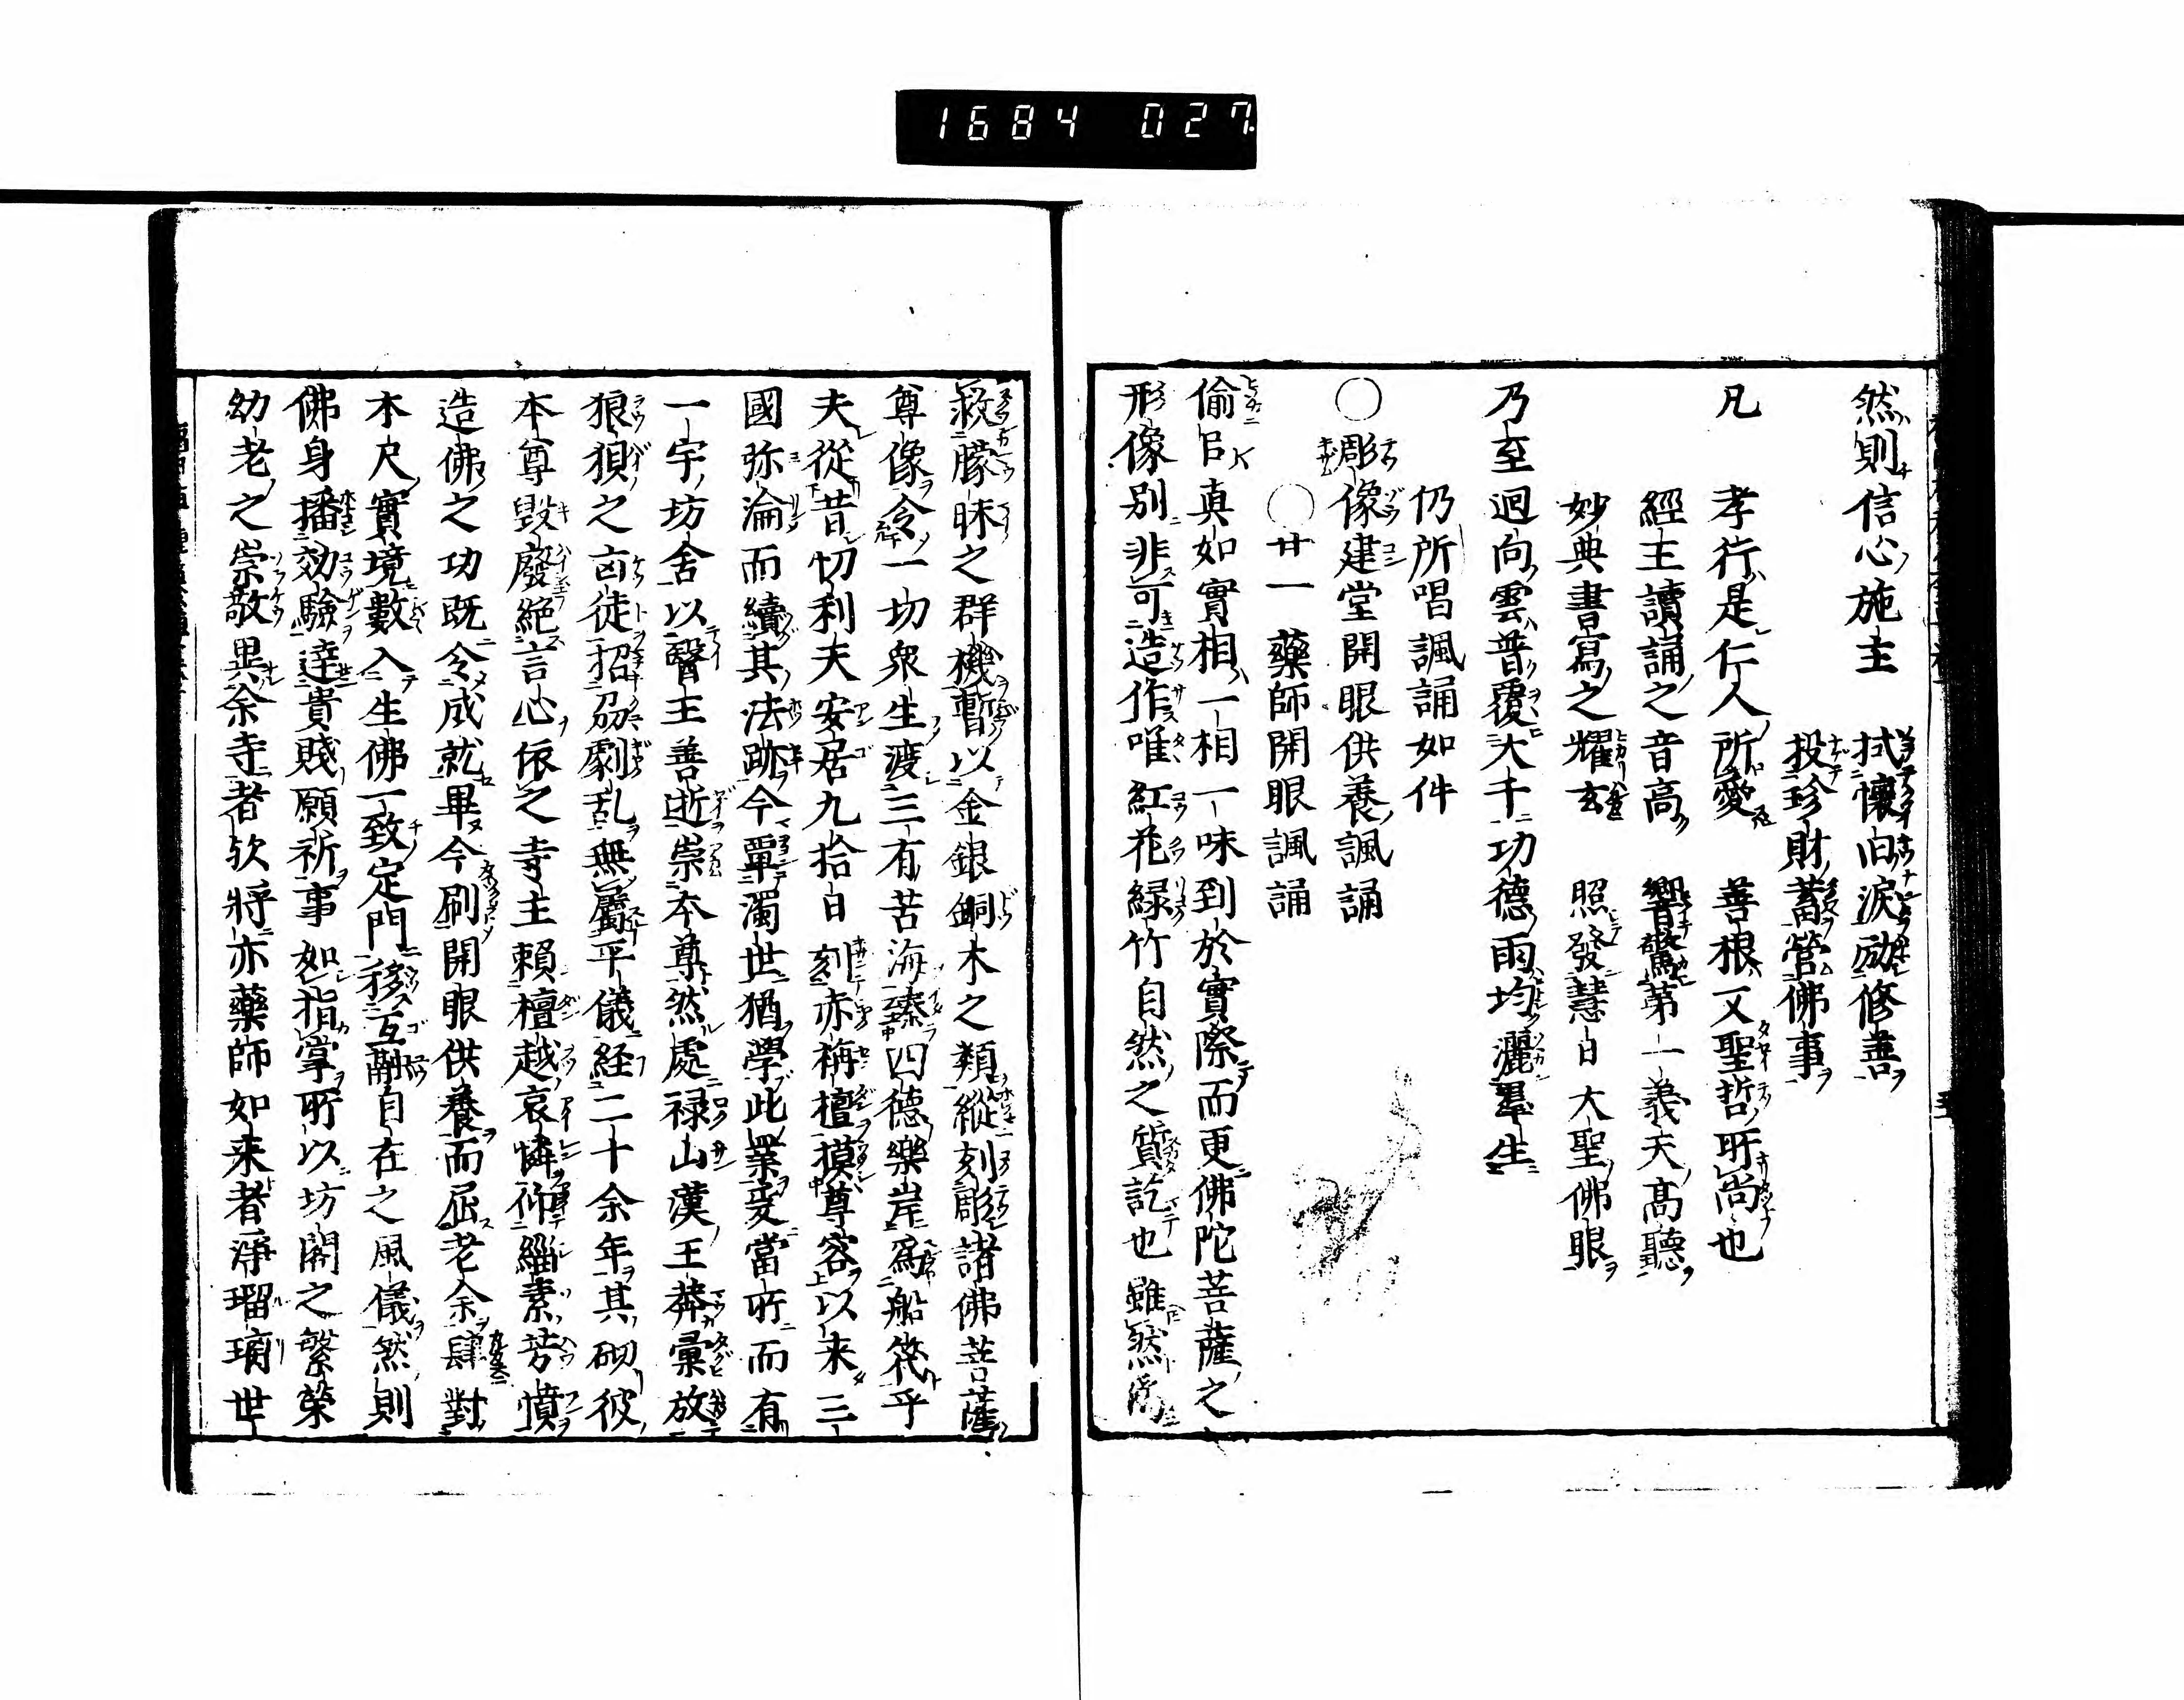 1684 027.
然則信心施主　拭懷旧淚励修善
投珍財蓄營佛事
凡　孝行是仁人所愛　善根又聖哲所尚也
經王讀誦之音高　響驚第一義天髙聽
妙典書寫之耀玄　照發慧日大聖佛眼
乃至迴向雲普覆大千功德雨均灑羣生
仍所唱諷誦如件
○彫像建堂開眼供養諷誦
○廿一　藥師開眼諷誦
倫㠯真如實相一相一味到於實際而更佛陀菩薩之
形像别非可造作唯紅花緑竹自然之質訖也雖然為
救朦昧之群機暫以金銀銅木之類縱刻彫諸佛菩薩
尊像令一切衆生渡三有苦海臻四德樂岸為船筏乎
夫從昔忉利夫安居九拾日刻赤栴檀摸尊容以来三
國弥淪而續其法跡今覃濁世猶學此業爰當所而有
一宇坊舍以醫王善逝崇本尊然處禄山漢王莽彙放
狼狽之㐫徒招刕劇乱無屬平儀経二十余年其砌彼
本尊毀廢絕言心依之寺主賴檀越哀憐衈緇素芳憤
造佛之功既令成就畢今刷開眼供養而屈老余肆對
木尺實境數入生佛一致定門移互融自在之風儀然則
佛身播効驗達貴賤願祈事如指掌所以坊閣之繁榮
幼老之崇敬異余寺者欤將亦藥師如来者淨瑠璃世